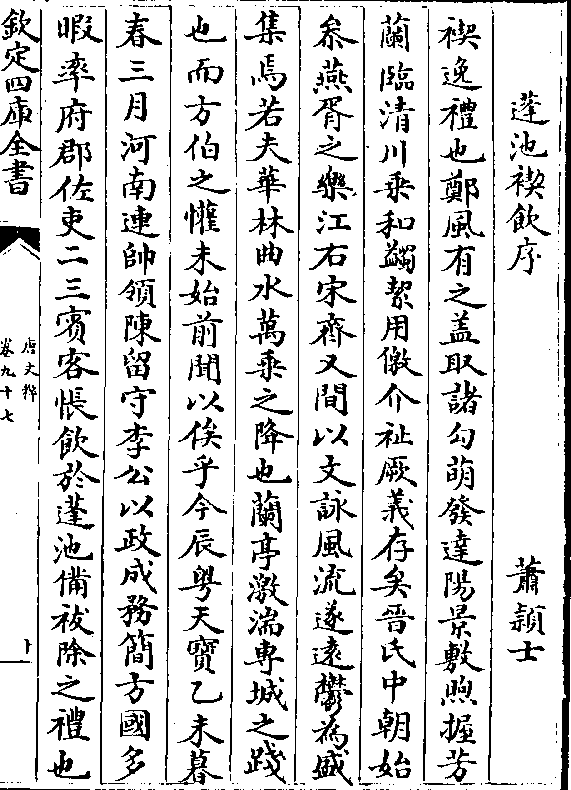 蓬池禊飲序 蕭頴士
禊逸禮也鄭風有之蓋取諸勾萌發達陽景敷煦握芳
蘭臨清川乗和蠲潔用徼介祉厥義存矣晉氏中朝始
叅燕胥之樂江右宋齊又間以文詠風流遂逺鬱為盛
集焉若夫華林曲水萬乗之降也蘭亭激湍専城之踐
也而方伯之懽未始前聞以俟乎今辰粤天寳乙未暮
春三月河南連帥領陳留守李公以政成務簡方國多
暇率府郡佐吏二三賓客帳飲於蓬池備祓除之禮也
欽定四庫全書
唐文粹
卷九十七
十